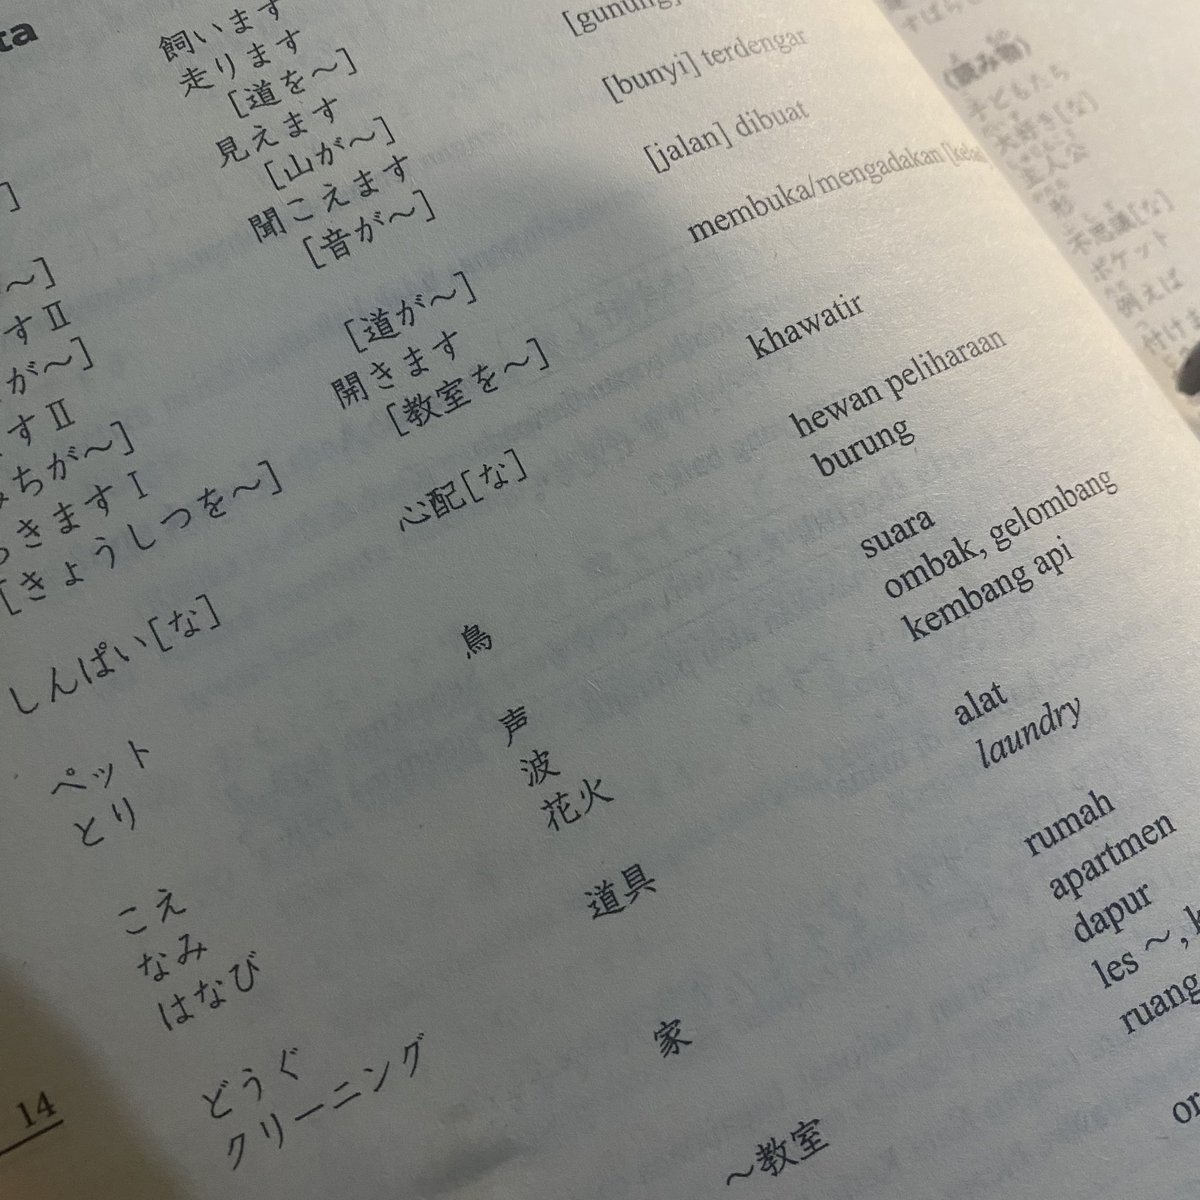 ta
飼います
走ります
] [道を～]
見えます [gunung]
～] [山が～]
すⅡ 聞こえます [bunyi] terdengar
が～] [音が～]
すⅡ [jalan] dibuat
ちが～] [道が～]
きますⅠ 開きます membuka/mengadakan [kelas
[きょうしつを～] [教室を～]
しんぱい[な] 心配[な] khawatir
ペット hewan peliharaan
とり 鳥 burung
こえ 声 suara
なみ 波 ombak, gelombang
はなび 花火 kembang api
どうぐ 道具 alat
クリーニング laundry
家 rumah
apartmen
dapur
～教室 les ～, k
ruang
or
14
すばらし
(読み物)
子どもたち
大好き[な]
主人公
形
不思議[な]
ポケット
例えば
付け